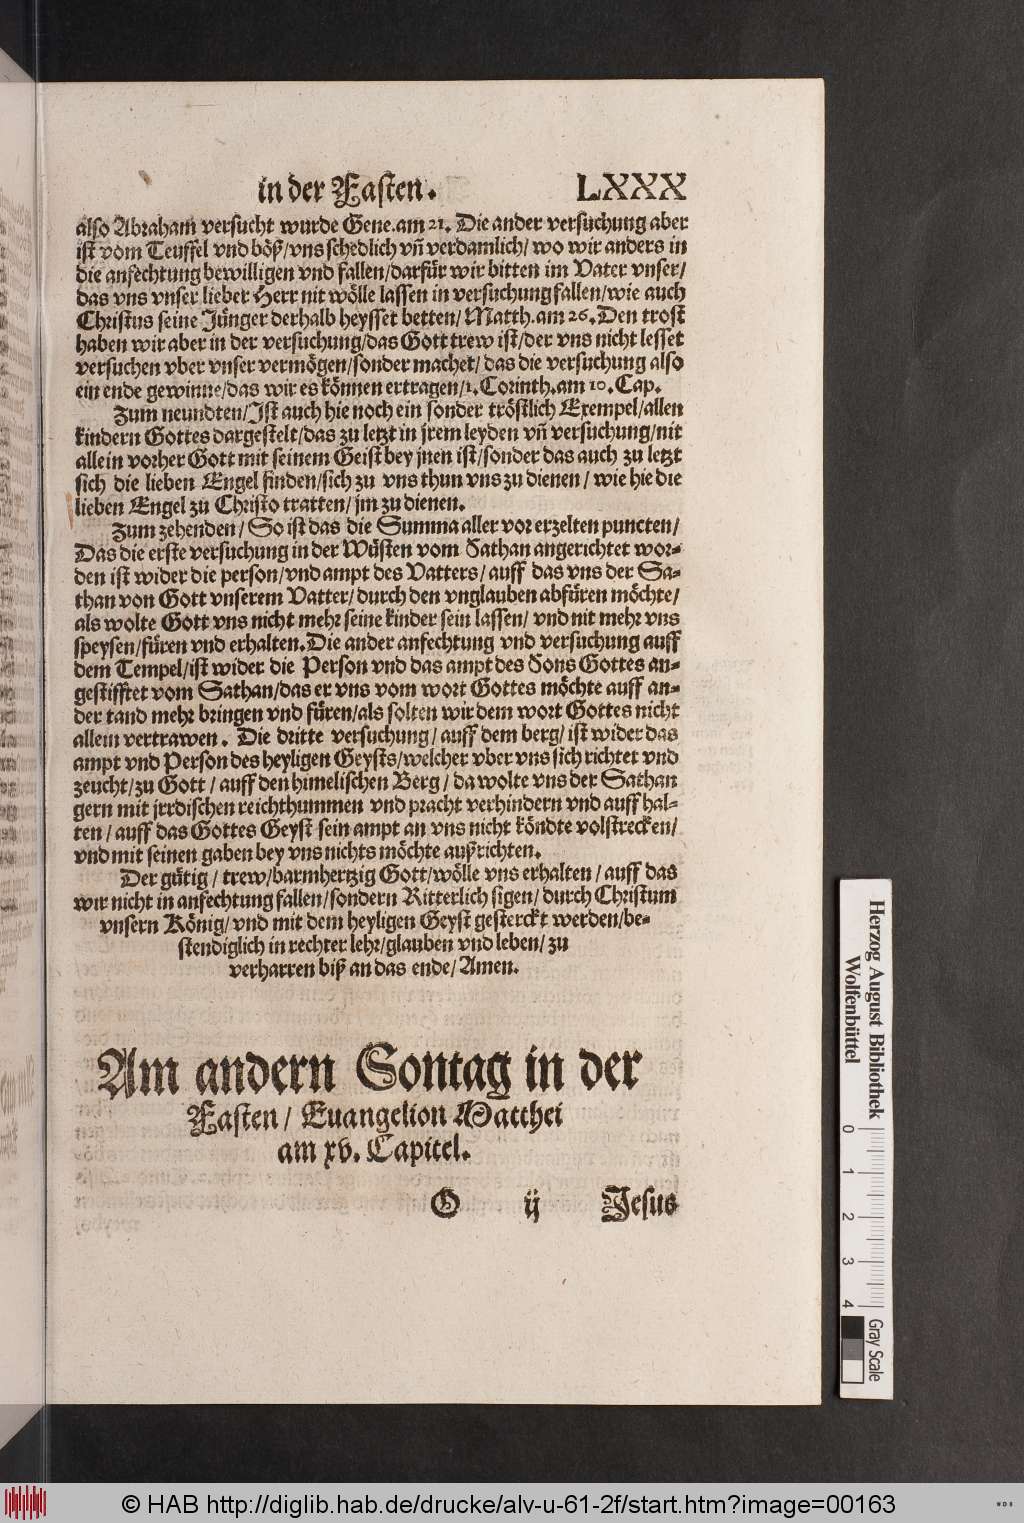 in der Fasten. LXXX
also Abraham versucht wurde Gene. am 21. Die ander versuchung aber
ist vom Teuffel vnd böß/vns schedlich vn̄ verdamlich/ wo wir anders in
die anfechtung bewilligen vnd fallen/darfür wir bitten im Vater vnser/
das vns vnser lieber Herr nit wölle lassen in versuchung fallen/wie auch
Christus seine Jünger derhalb heysset betten/ Matth. am 26. Den trost
haben wir aber in der versuchung/das Gott trew ist/der vns nicht lesset
versuchen vber vnser vermögen/sonder machet/ das die versuchung also
ein ende gewinne/das wir es können ertragen/1. Corinth. am 10. Cap.
Zum neundten/Ist auch hie noch ein sonder tröstlich Exempel/allen
kindern Gottes dargestelt/das zu letzt in jrem leyden vn̄ versuchung/nit
allein vorher Gott mit seinem Geist bey jnen ist/sonder das auch zu letzt
sich die lieben Engel finden/sich zu vns thun vns zu dienen/ wie hie die
lieben Engel zu Christo tratten/ jm zu dienen.
Zum zehenden/ So ist das die Summa aller vor erzelten puncten/
Das die erste versuchung in der Wüsten vom Sathan angerichtet wor-
den ist wider die person/vnd ampt des Vatters/ auff das vns der Sa-
than von Gott vnserem Vatter/ durch den vnglauben abfüren möchte/
als wolte Gott vns nicht mehr seine kinder sein lassen/ vnd nit mehr vns
speysen/füren vnd erhalten. Die ander anfechtung vnd versuchung auff
dem Tempel/ist wider die Person vnd das ampt des Sons Gottes an-
gestifftet vom Sathan/das er vns vom wort Gottes möchte auff an-
der tand mehr bringen vnd füren/als solten wir dem wort Gottes nicht
allein vertrawen. Die dritte versuchung/ auff dem berg/ ist wider das
ampt vnd Person des heyligen Geysts/welcher vber vns sich richtet vnd
zeucht/zu Gott/ auff den himelischen Berg/ da wolte vns der Sathan
gern mit jrrdischen reichthummen vnd pracht verhindern vnd auff hal-
ten/ auff das Gottes Geyst sein ampt an vns nicht köndte volstrecken/
vnd mit seinen gaben bey vns nichts möchte außrichten.
Der gütig/ trew/barmhertzig Gott/wölle vns erhalten/ auff das
wir nicht in anfechtung fallen/sondern Ritterlich sigen/ durch Christum
vnsern König/ vnd mit dem heyligen Geyst gesterckt werden/be-
stendiglich in rechter lehr/glauben vnd leben/ zu
verharren biß an das ende/ Amen.
Am andern Sontag in der
Fasten/ Euangelion Matthei
am xv. Capitel.
O ij Jesus
Herzog August Bibliothek
Wolfenbüttel
0 1 2 3 4
Gray Scale
© HAB http://diglib.hab.de/drucke/alv-u-61-2f/start.htm?image=00163